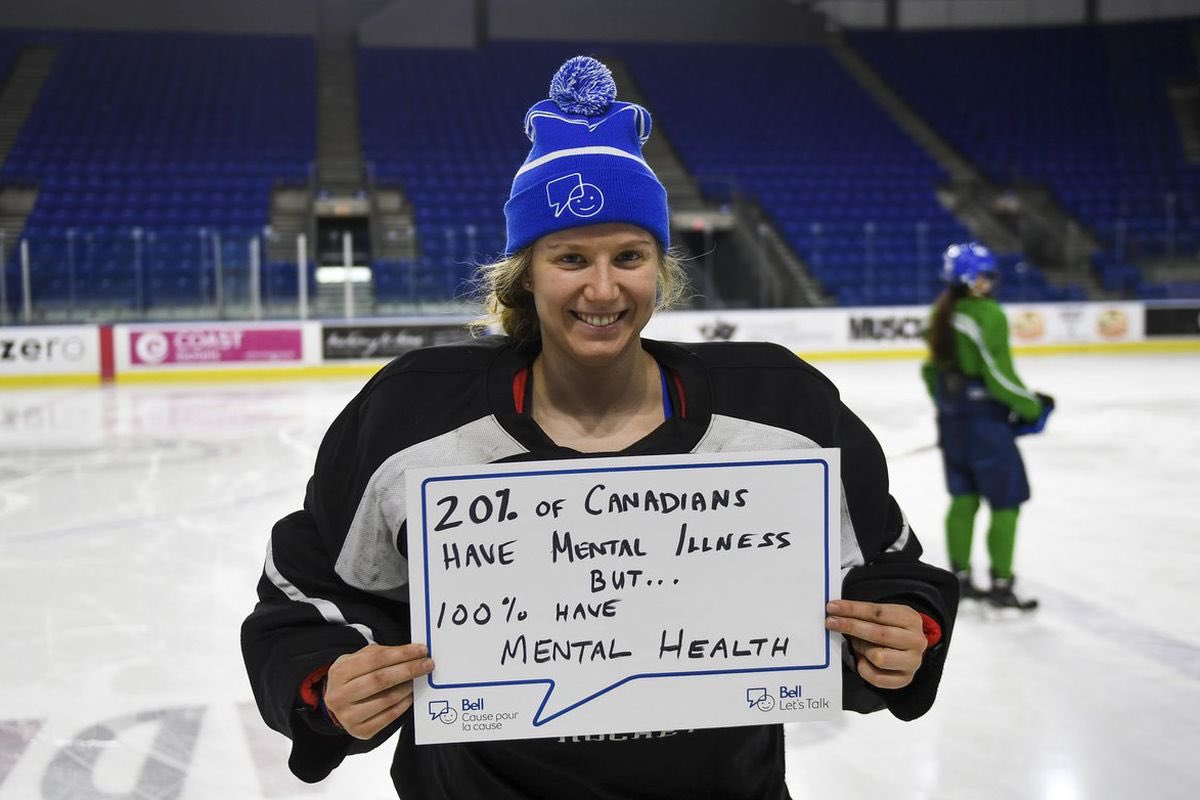 zero
COAST
MUSCL
20% OF CANADIANS
HAVE MENTAL ILLNESS
BUT...
100% HAVE
MENTAL HEALTH
Bell
Cause pour
la cause
Bell
Let's Talk